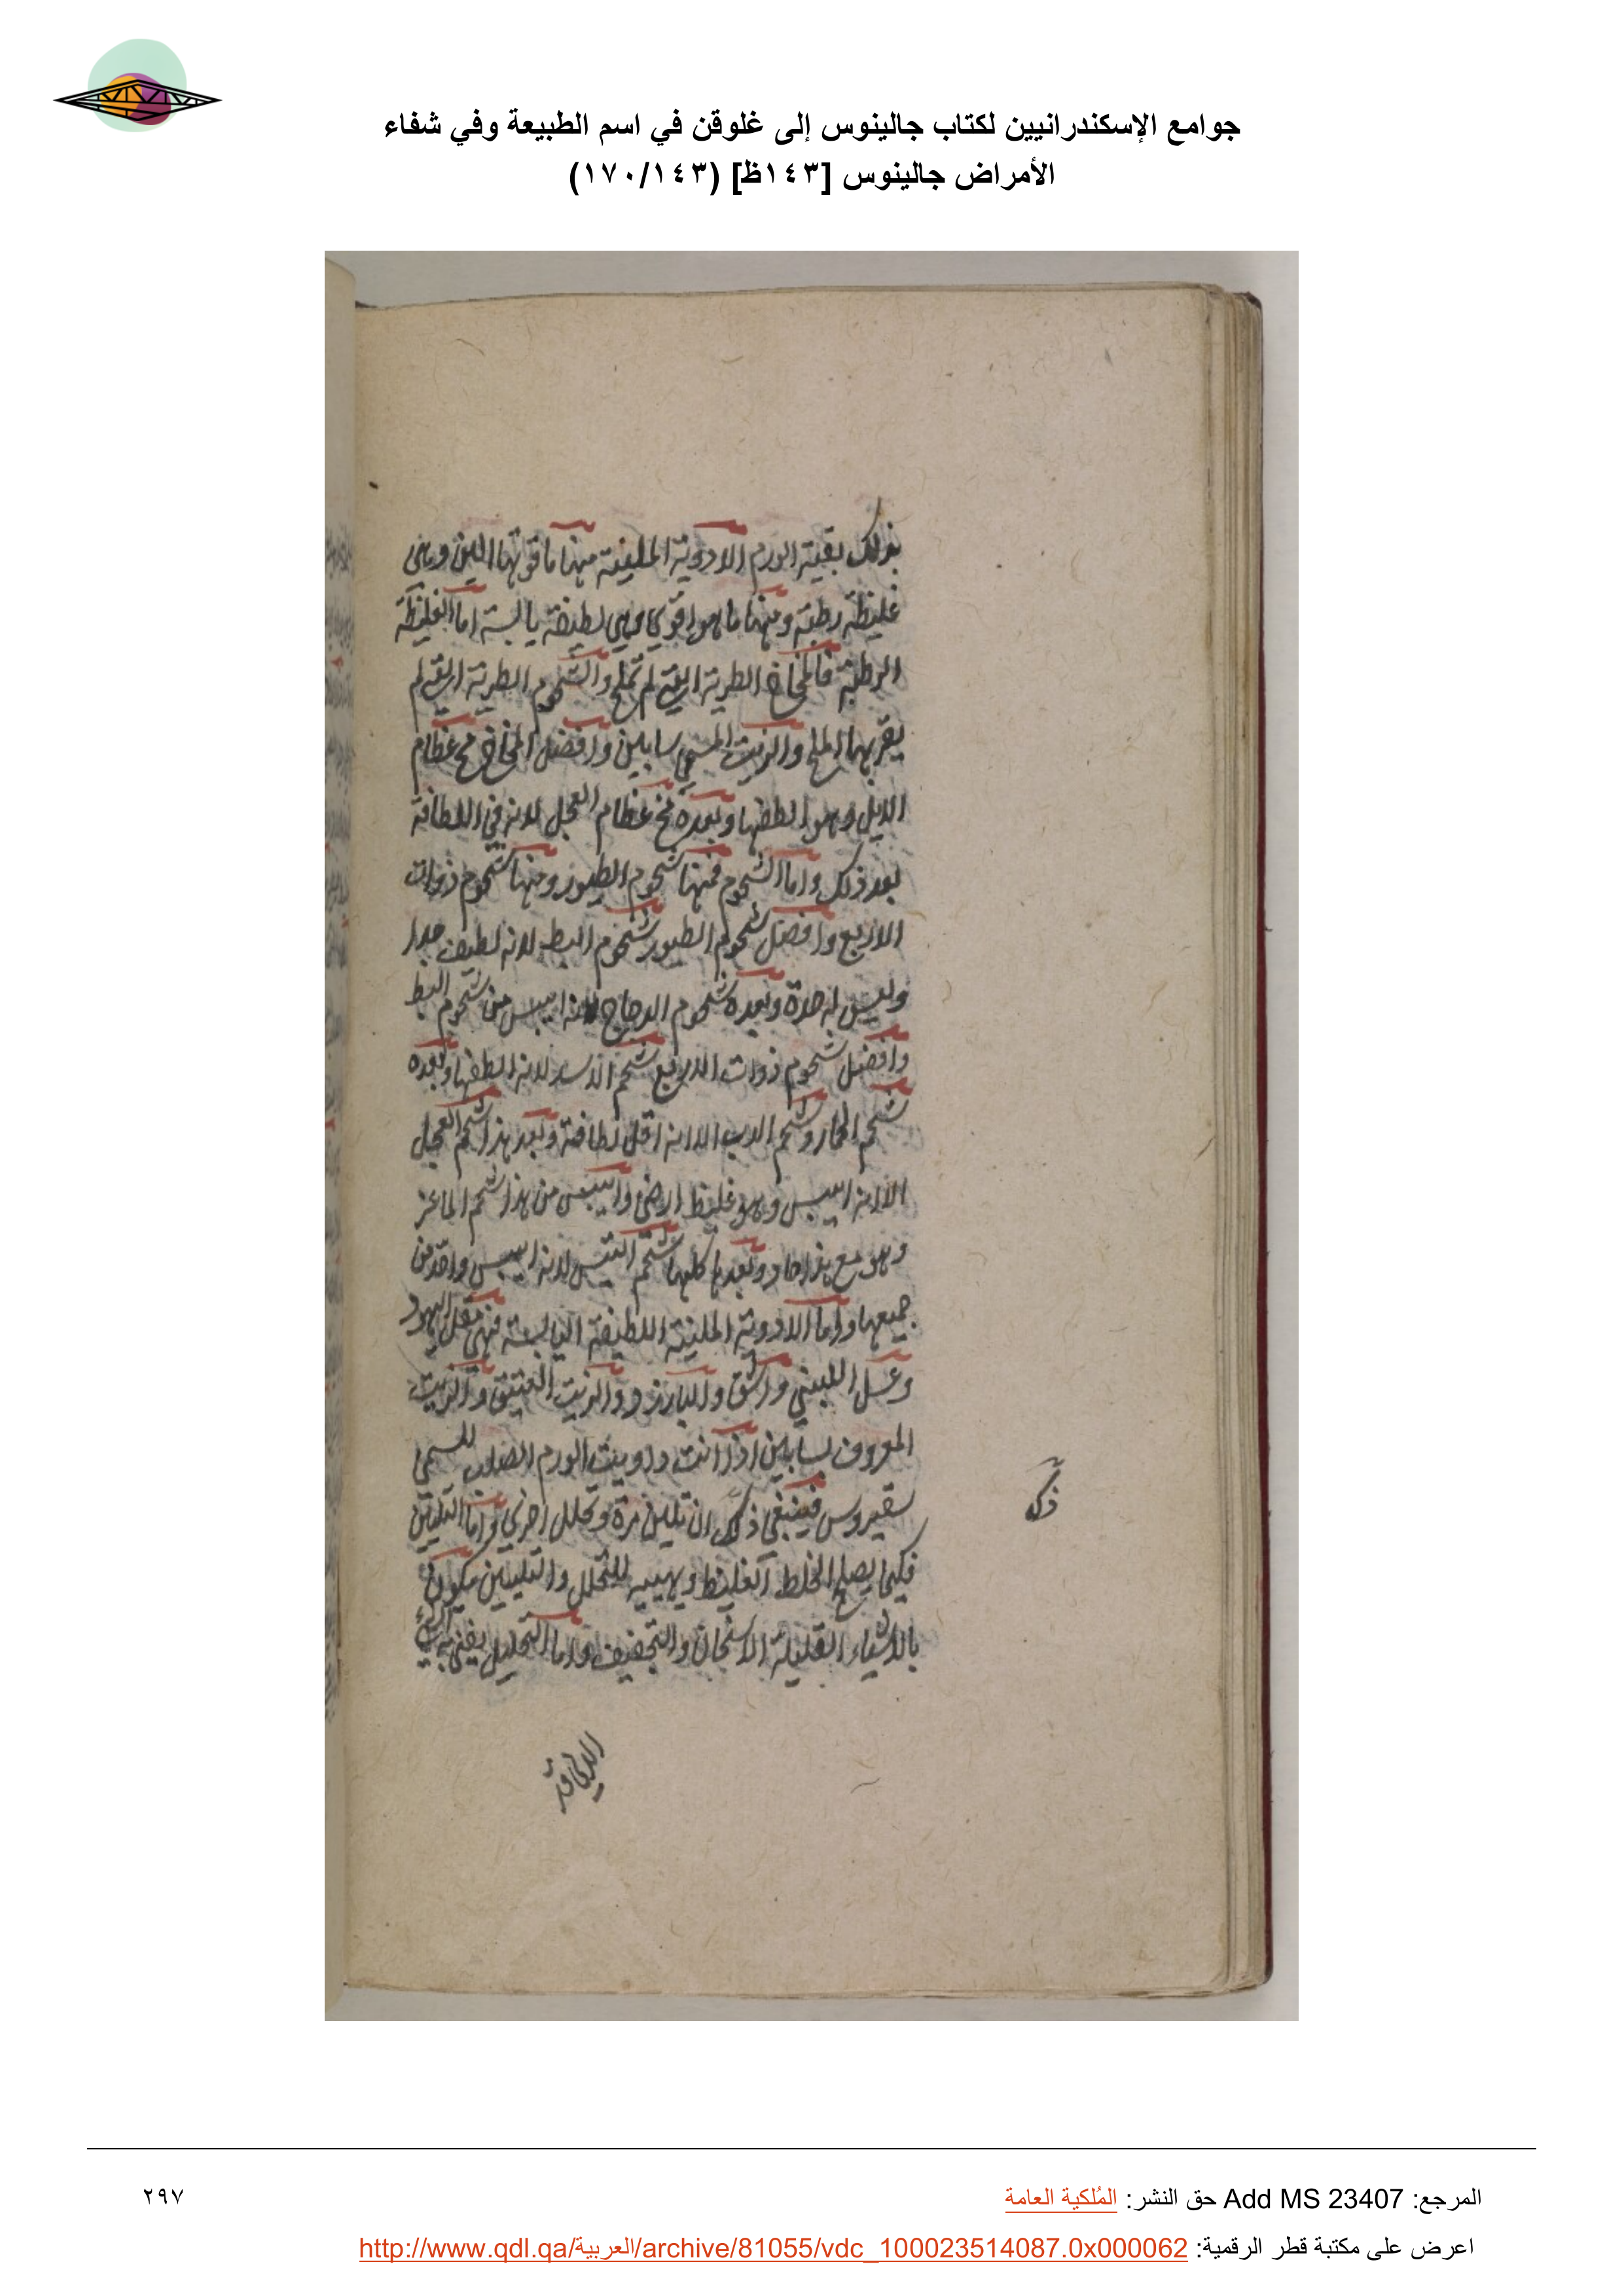 جوامع الإسكندرانيين لكتاب جالينوس إلى غلوقن في اسم الطبيعة وفي شفاء
الأمراض جالينوس [١٤٣ظ] (١٧٠/١٤٣)
بذلك بقية الورم الادوية الملينة منها ما قوتها اللين وهى
غليظة رطبة ومنها ما هو اقوى وهي لطيفة يابسة اما الغليظة
الرطبة فالمخاخ الطرية التي لم تملح والشحوم الطرية التي لم
يقربها الملح والزيت المسمى سابين وافضل المخاخ مخ عظام
الايل وهو الطفها وبعده مخ عظام العجل لانه في اللطافة
بعد ذلك واما الشحوم فمنها شحوم الطيور ومنها شحوم ذوات
الاربع وافضل شحوم الطيور شحوم البط لانه لطيف جدا
وليس له حدة وبعده شحوم الدجاج لانه ايبس من شحوم البط
وافضل شحوم ذوات الاربع شحم الاسد لانه الطفها وبعده
شحم الحمار وشحم الدب الا انه اقل لطافة وبعد هذا شحم العجل
الا انه ايبس وهو غليظ ارضى وايبس من هذا شحم الماعز
وهو مع هذا حاد وبعدها كلها شحم التيس لانه ايبس واحد من
جميعها واما الادوية الملينة اللطيفة اليابسة فهي مقل اليهود
وعسل اللبنى واشق والبارزد والزيت العتيق والزيت
المعروف بسابين اذا انت داويت الورم الصلب المسمى
سقيروس فينبغي ذلك ان تلين مرة وتحلل اخرى واما التليين
فكيما يصلح الخلط الغليظ ويهييه للتحلل والتليين يكون
بالاشياء القليلة الاسخان والتجفيف واما التحليل
ذلك
المرجع: Add MS 23407 حق النشر: المُلكية العامة
٢٩٧
اعرض على مكتبة قطر الرقمية: http://www.qdl.qa/العربية/archive/81055/vdc_100023514087.0x000062